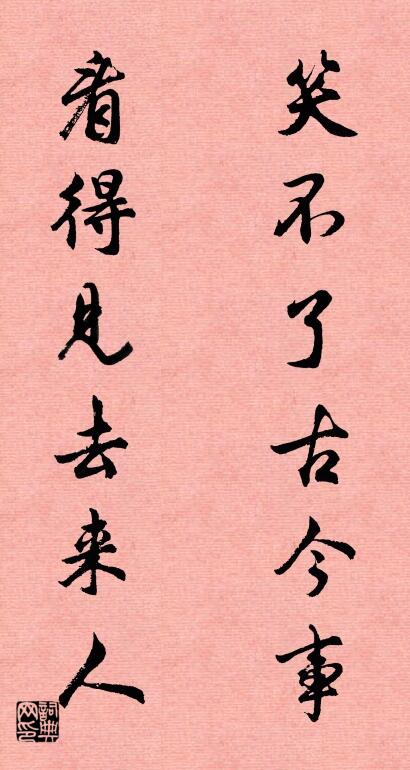 笑不了古今事
看得見去来人
詞典网印